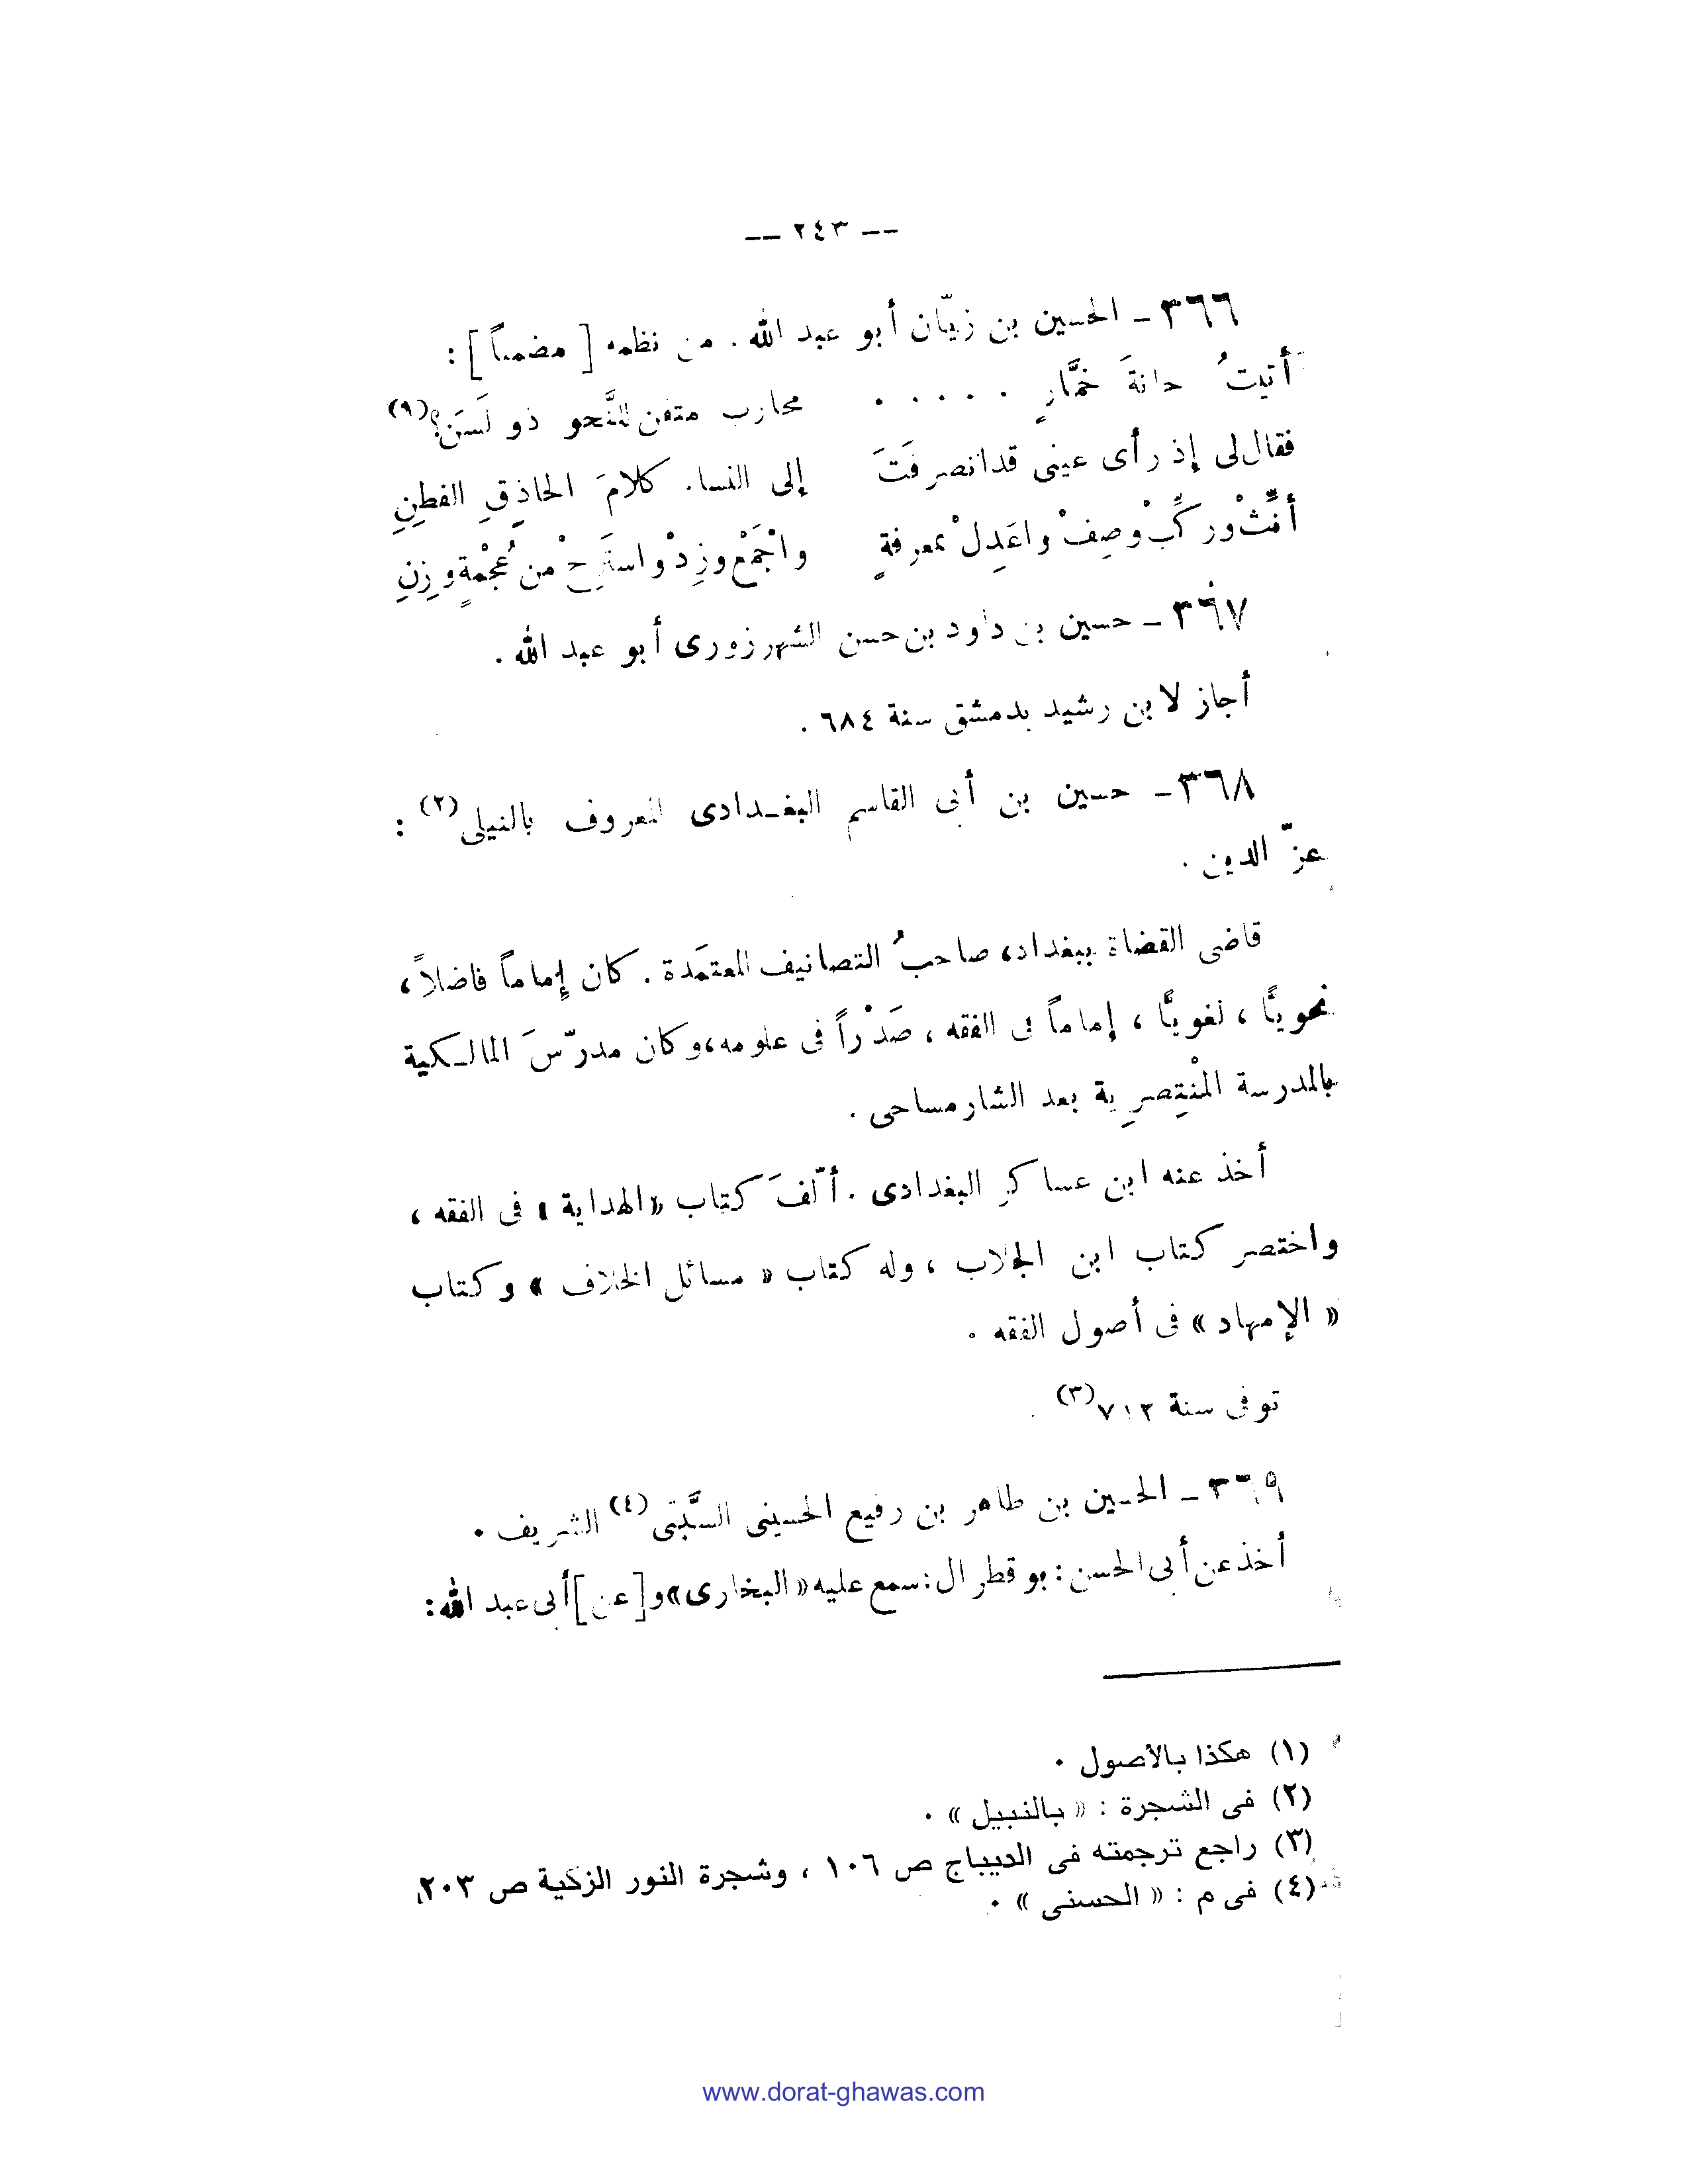 -- ٢٤٣ --
٣٦٦ - الحسين بن زيّان أبو عبد الله . من نظمه [ مضمناً ] :
أتيتُ حانةَ خمَّارٍ . . . . . محارب متفن للنَّحو ذو لَسَن؟(٩)
فقال لى إذ رأى عينى قد انصرفَتَ إلى النسا. كلامَ الحاذِقِ الفطِنِ
أنِّثْ وركِّبْ وصِفْ واعَدِلْ بمعرفةٍ واجْمَعْ وزِدْ واستَرِحْ من عُجْمْةٍ وزِنِ
٣٦٧ - حسين بن داود بن حسن الشهرزورى أبو عبد الله .
أجاز لابن رشيد بدمشق سنة ٦٨٤ .
٣٦٨ - حسين بن أبى القاسم البغـدادى المعروف بالنيلى(٢) :
عزّ الدين .
قاضى القضاة ببغداد، صاحبُ التصانيف المعتمَدة . كان إماماً فاضلاً ،
نحويًّا ، لغويًّا ، إماماً فى الفقه ، صَدْراً فى علومه، وكان مدرّسَ المالـكية
بالمدرسة المنْتِصرِية بعد الشارمساحى .
أخذ عنه ابن عساكر البغدادى . ألّفَ كتاب «الهداية» فى الفقه ،
واختصر كتاب ابن الجلاب ، وله كتاب « مسائل الخلاف » وكتاب
« الإمهاد » فى أصول الفقه .
توفى سنة ٧١٢(٣) .
٣٦٩ - الحسين بن طاهر بن رفيع الحسينى السَّبتى(٤) الشريف .
أخذ عن أبى الحسن : بو قطرال : سمع عليه «البخارى» و[عن] أبى عبد الله :
(١) هكذا بالأصول .
(٢) فى الشجرة : « بالنبيل » .
(٣) راجع ترجمته فى الديباج ص ١٠٦ ، وشجرة النور الزكية ص ٢٠٣.
(٤) فى م : « الحسنى » .
www.dorat-ghawas.com